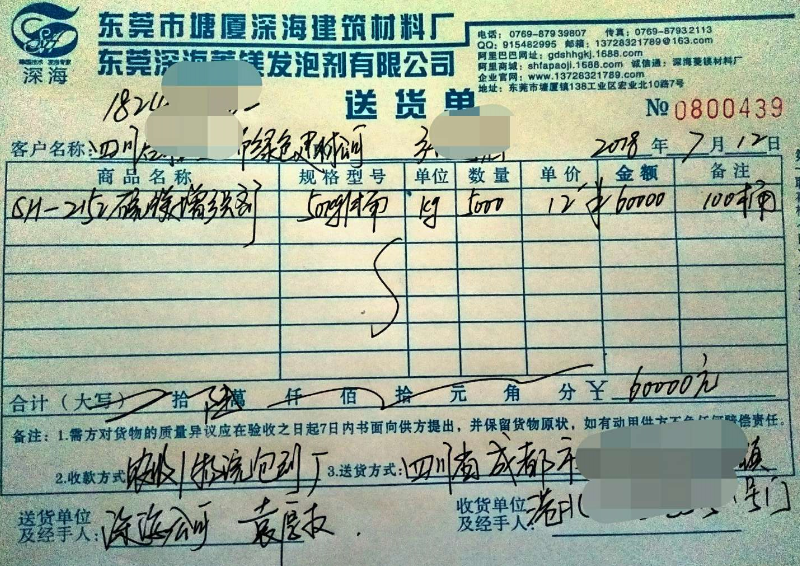 东莞市塘厦深海建筑材料厂
东莞深海菱镁发泡剂有限公司
深海
电话：0769-87939807 传真：0769-87932113
QQ：915482995 邮箱：13728321789@163.com
阿里巴巴网址：gdshhgkj.1688.com
阿里商城：shfapaoji.1688.com 诚信通：深海菱镁材料厂
企业官网：www.13728321789.com
地址：东莞市塘厦镇138工业区宏业北10路7号
送货单
№ 0800439
客户名称：四川 市绿色建材公司 2018年7月12日
商品名称 规格型号 单位 数量 单价 金额 备注
SH-2152硫镁增强剂 50kg/桶 kg 5000 12 60000 100桶
合计（大写） 拾 陆萬 仟 佰 拾 元 角 分 ￥ 60000元
备注：1.需方对货物的质量异议应在验收之日起7日内书面向供方提出，并保留货物原状，如有动用供方不负任何赔偿责任。
2.收款方式 物流包到厂 3.送货方式：四川省成都市 镇
送货单位
及经手人： 深海公司
收货单位
及经手人： 号门